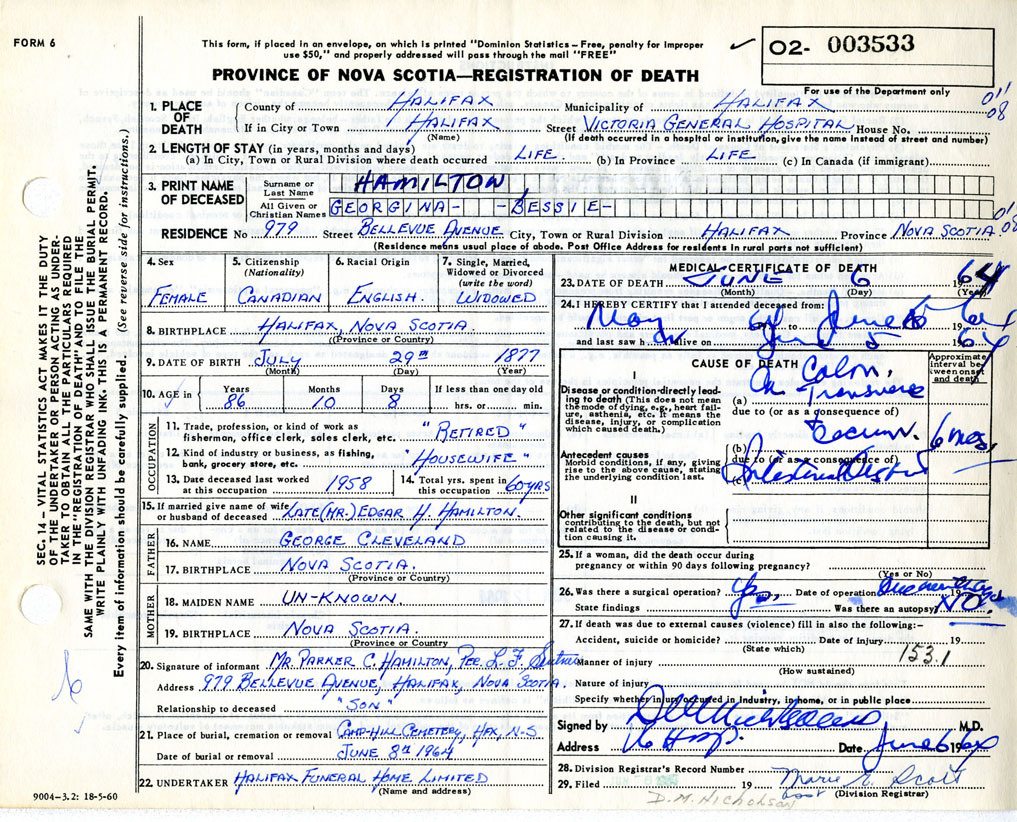 FORM 6
This form, if placed in an envelope, on which is printed "Dominion Statistics – Free, penalty for improper
use $50," and properly addressed will pass through the mail "FREE"
PROVINCE OF NOVA SCOTIA—REGISTRATION OF DEATH
O2- 003533
For use of the Department only
1. PLACE OF DEATH
County of HALIFAX Municipality of HALIFAX
If in City or Town HALIFAX Street VICTORIA GENERAL HOSPITAL House No.
(Name) (If death occurred in a hospital or institution, give the name instead of street and number)
011
08
2. LENGTH OF STAY (in years, months and days)
(a) In City, Town or Rural Division where death occurred LIFE. (b) In Province LIFE. (c) In Canada (if immigrant)
3. PRINT NAME OF DECEASED
Surname or Last Name HAMILTON,
All Given or Christian Names GEORGINA- - -BESSIE-
RESIDENCE No 979 Street BELLEVUE AVENUE City, Town or Rural Division HALIFAX Province NOVA SCOTIA.
08
(Residence means usual place of abode. Post Office Address for residents in rural parts not sufficient)
4. Sex FEMALE
5. Citizenship (Nationality) CANADIAN
6. Racial Origin ENGLISH.
7. Single, Married, Widowed or Divorced (write the word) WIDOWED
8. BIRTHPLACE HALIFAX, NOVA SCOTIA.
(Province or Country)
9. DATE OF BIRTH JULY 29TH 1877
(Month) (Day) (Year)
10. AGE in Years 86 Months 10 Days 8 If less than one day old hrs. or min.
OCCUPATION
11. Trade, profession, or kind of work as
fisherman, office clerk, sales clerk, etc. "RETIRED"
12. Kind of industry or business, as fishing,
bank, grocery store, etc. "HOUSEWIFE"
13. Date deceased last worked
at this occupation 1958
14. Total yrs. spent in
this occupation 60 YRS
15. If married give name of wife
or husband of deceased LATE (MR.) EDGAR H. HAMILTON.
FATHER
16. NAME GEORGE CLEVELAND
17. BIRTHPLACE NOVA SCOTIA.
(Province or Country)
MOTHER
18. MAIDEN NAME UN-KNOWN.
19. BIRTHPLACE NOVA SCOTIA.
(Province or Country)
20. Signature of informant MR. PARKER C. HAMILTON, PER. L. F.
Address 979 BELLEVUE AVENUE, HALIFAX, NOVA SCOTIA.
Relationship to deceased "SON"
21. Place of burial, cremation or removal CAMP-HILL CEMETERY, HFX, N-S
Date of burial or removal JUNE 8TH 1964
22. UNDERTAKER HALIFAX FUNERAL HOME LIMITED
(Name and address)
9004-3.2: 18-5-60
MEDICAL CERTIFICATE OF DEATH
23. DATE OF DEATH JUNE 6 1964
(Month) (Day) (Year)
24. I HEREBY CERTIFY that I attended deceased from:
May 64 to June 6 1964
and last saw h er alive on June 5 1964
CAUSE OF DEATH
Approximate interval between onset and death
I
Disease or condition directly leading to death (This does not mean the mode of dying, e.g., heart failure, asthenia, etc. It means the disease, injury, or complication which caused death.)
(a) Ca Colon, Transverse
due to (or as a consequence of)
Antecedent causes
Morbid conditions, if any, giving rise to the above cause, stating the underlying condition last.
(b) & Cecum. 6 mos,
due to (or as a consequence of)
(c) Intestinal
II
Other significant conditions
contributing to the death, but not related to the disease or condition causing it.
25. If a woman, did the death occur during
pregnancy or within 90 days following pregnancy?
(Yes or No)
26. Was there a surgical operation? Yes, Date of operation 19
State findings Was there an autopsy? NO.
27. If death was due to external causes (violence) fill in also the following:–
Accident, suicide or homicide? Date of injury 19
(State which)
153.1
Manner of injury
(How sustained)
Nature of injury
Specify whether injury occurred in industry, in home, or in public place
Signed by M.D.
Address VG Hosp. Date June 6 1964
28. Division Registrar's Record Number
29. Filed 19 Marie E. Scott
(Division Registrar)
D. M. NICHOLSON
SEC. 14.—VITAL STATISTICS ACT MAKES IT THE DUTY
OF THE UNDERTAKER OR PERSON ACTING AS UNDER-
TAKER TO OBTAIN ALL THE PARTICULARS REQUIRED
IN THE "REGISTRATION OF DEATH" AND TO FILE THE
SAME WITH THE DIVISION REGISTRAR WHO SHALL ISSUE THE BURIAL PERMIT.
WRITE PLAINLY WITH UNFADING INK. THIS IS A PERMANENT RECORD.
Every item of information should be carefully supplied. (See reverse side for instructions.)